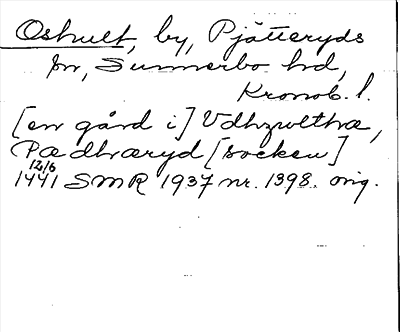 Oshult, by, Pjätteryds
sn, Sunnerbo hd,
Kronob. l.
[en gård i] Vdhzwlthræ,
Pædhræryd [socken]
12/6
1441 SMR 1937 nr. 1398. orig.